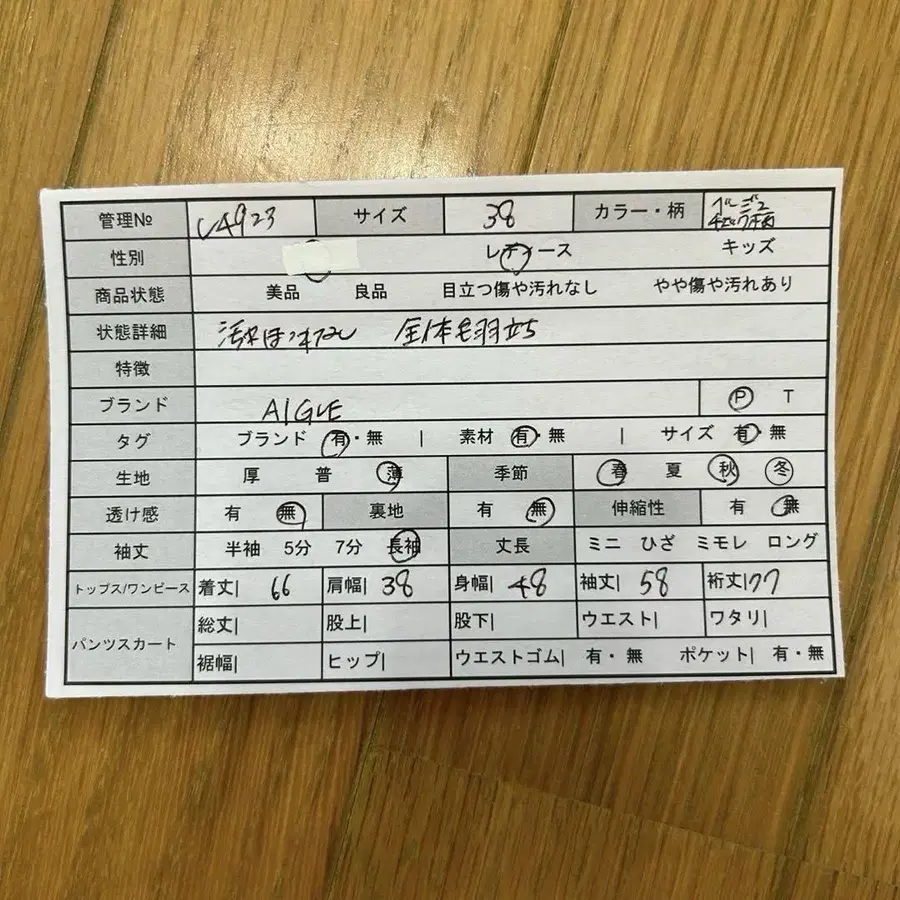 管理№ V4923 サイズ 38 カラー・柄 ベージュ チェック柄
性別 レディース キッズ
商品状態 美品 良品 目立つ傷や汚れなし やや傷や汚れあり
状態詳細 汚れほつれなし 全体毛羽立ち
特徴
ブランド AIGLE P T
タグ ブランド 有・無 | 素材 有・無 | サイズ 有・無
生地 厚 普 薄 季節 春 夏 秋 冬
透け感 有 無 裏地 有 無 伸縮性 有 無
袖丈 半袖 5分 7分 長袖 丈長 ミニ ひざ ミモレ ロング
トップス/ワンピース 着丈| 66 肩幅| 38 身幅| 48 袖丈| 58 裄丈| 77
パンツスカート 総丈| 股上| 股下| ウエスト| ワタリ|
裾幅| ヒップ| ウエストゴム| 有・無 ポケット| 有・無